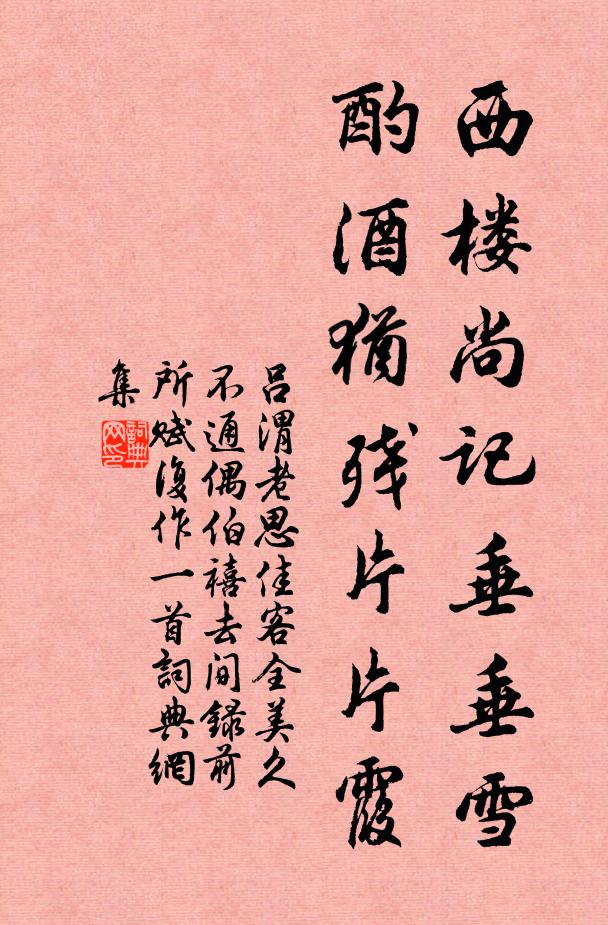 西楼尚记垂垂雪
酌酒犹残片片霞
吕渭老思佳客全美久
不通偶伯禧去间録前
所赋复作一首詞典網
集
詞典
网印